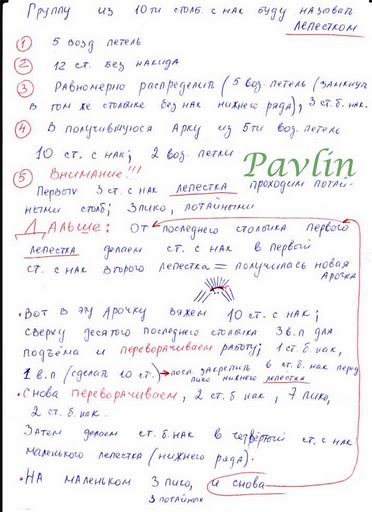 Группу из 10ти столб. с нак буду называть
лепестком
1 5 возд петель
2 12 ст. без накида
3 Равномерно распределить (5 воз. петель (замкнуть
в том же столбике без нак нижнего ряда), 3 ст. б. нак.
4 В получившуюся Арку из 5ти воз. петель
10 ст. с нак; 2 воз. петли
Pavlin
5 Внимание!!!
Первых 3 ст. с нак лепестка проходим потай-
ными столб; 3 пико, потайными
Дальше: От последнего столбика первого
лепестка делаем ст. с нак в первый
ст. с нак второго лепестка = получилась новая
Арочка
• Вот в эту Арочку вяжем 10 ст. с нак;
сверху десятого последнего столбика 3 в.п для
подъёма и переворачиваем работу; 1 ст. б. нак,
1 в.п (сделать 10 ст.) → посл. закрепить в ст. б. нак перед
пико нижнего лепестка
• Снова переворачиваем, 2 ст. б нак, 7 пико,
2 ст. б. нак.
Затем делаем ст. б. нак в четвёртый ст. с нак
маленького лепестка (нижнего ряда).
• На маленьком 3 пико, и снова
3 потайных